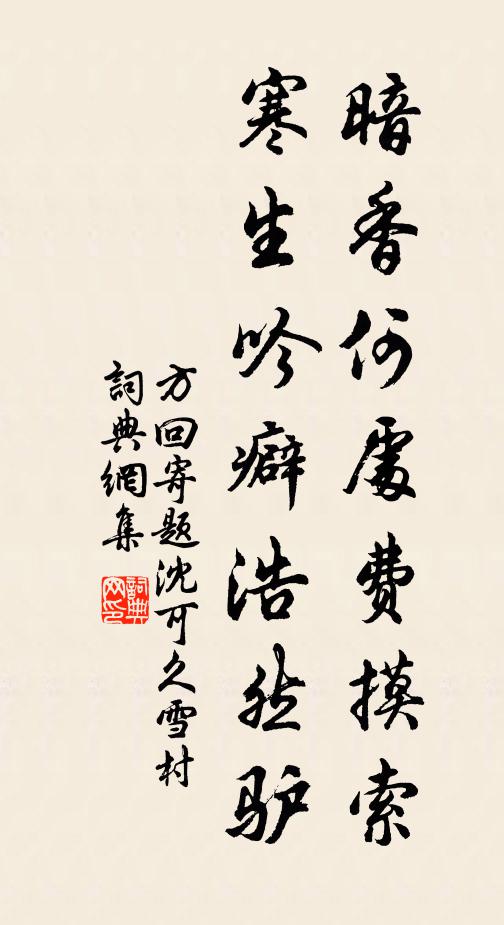 暗香何處費摸索
寒生吟癖浩然驴
方回寄题沈可久雪村
詞典網集
詞典
网印